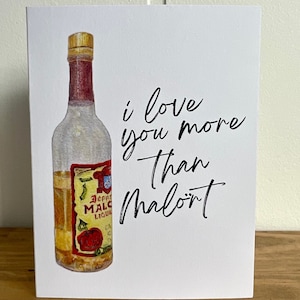 i love
you more
than
Malört
Jeppson
MALÖ
LIQU